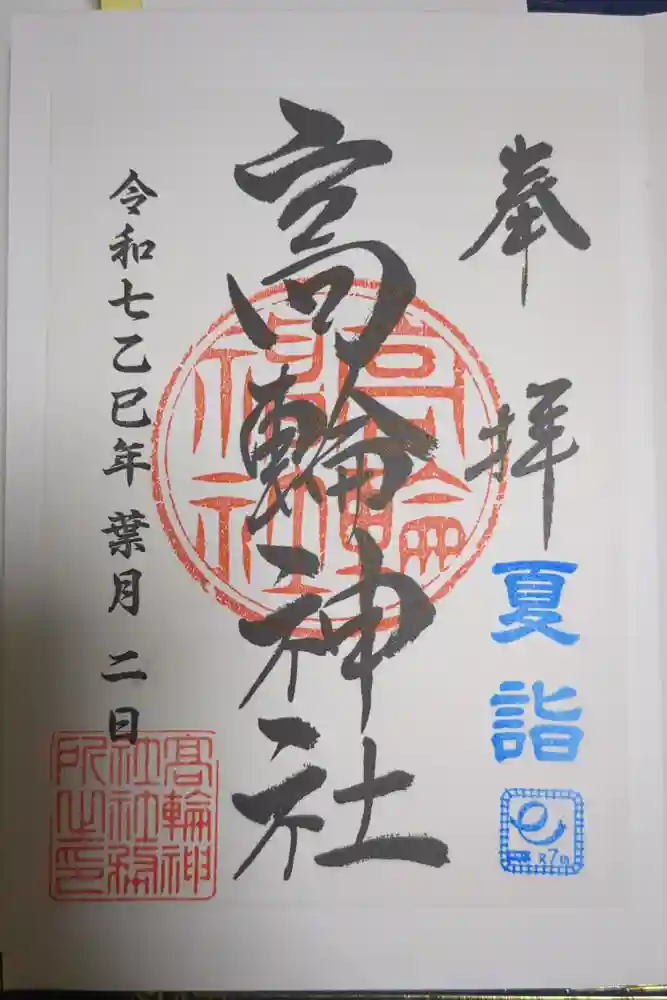 奉拝
夏詣
R7
高輪神社
高輪神社
令和七乙巳年葉月二日
高輪神
社社務
所之印